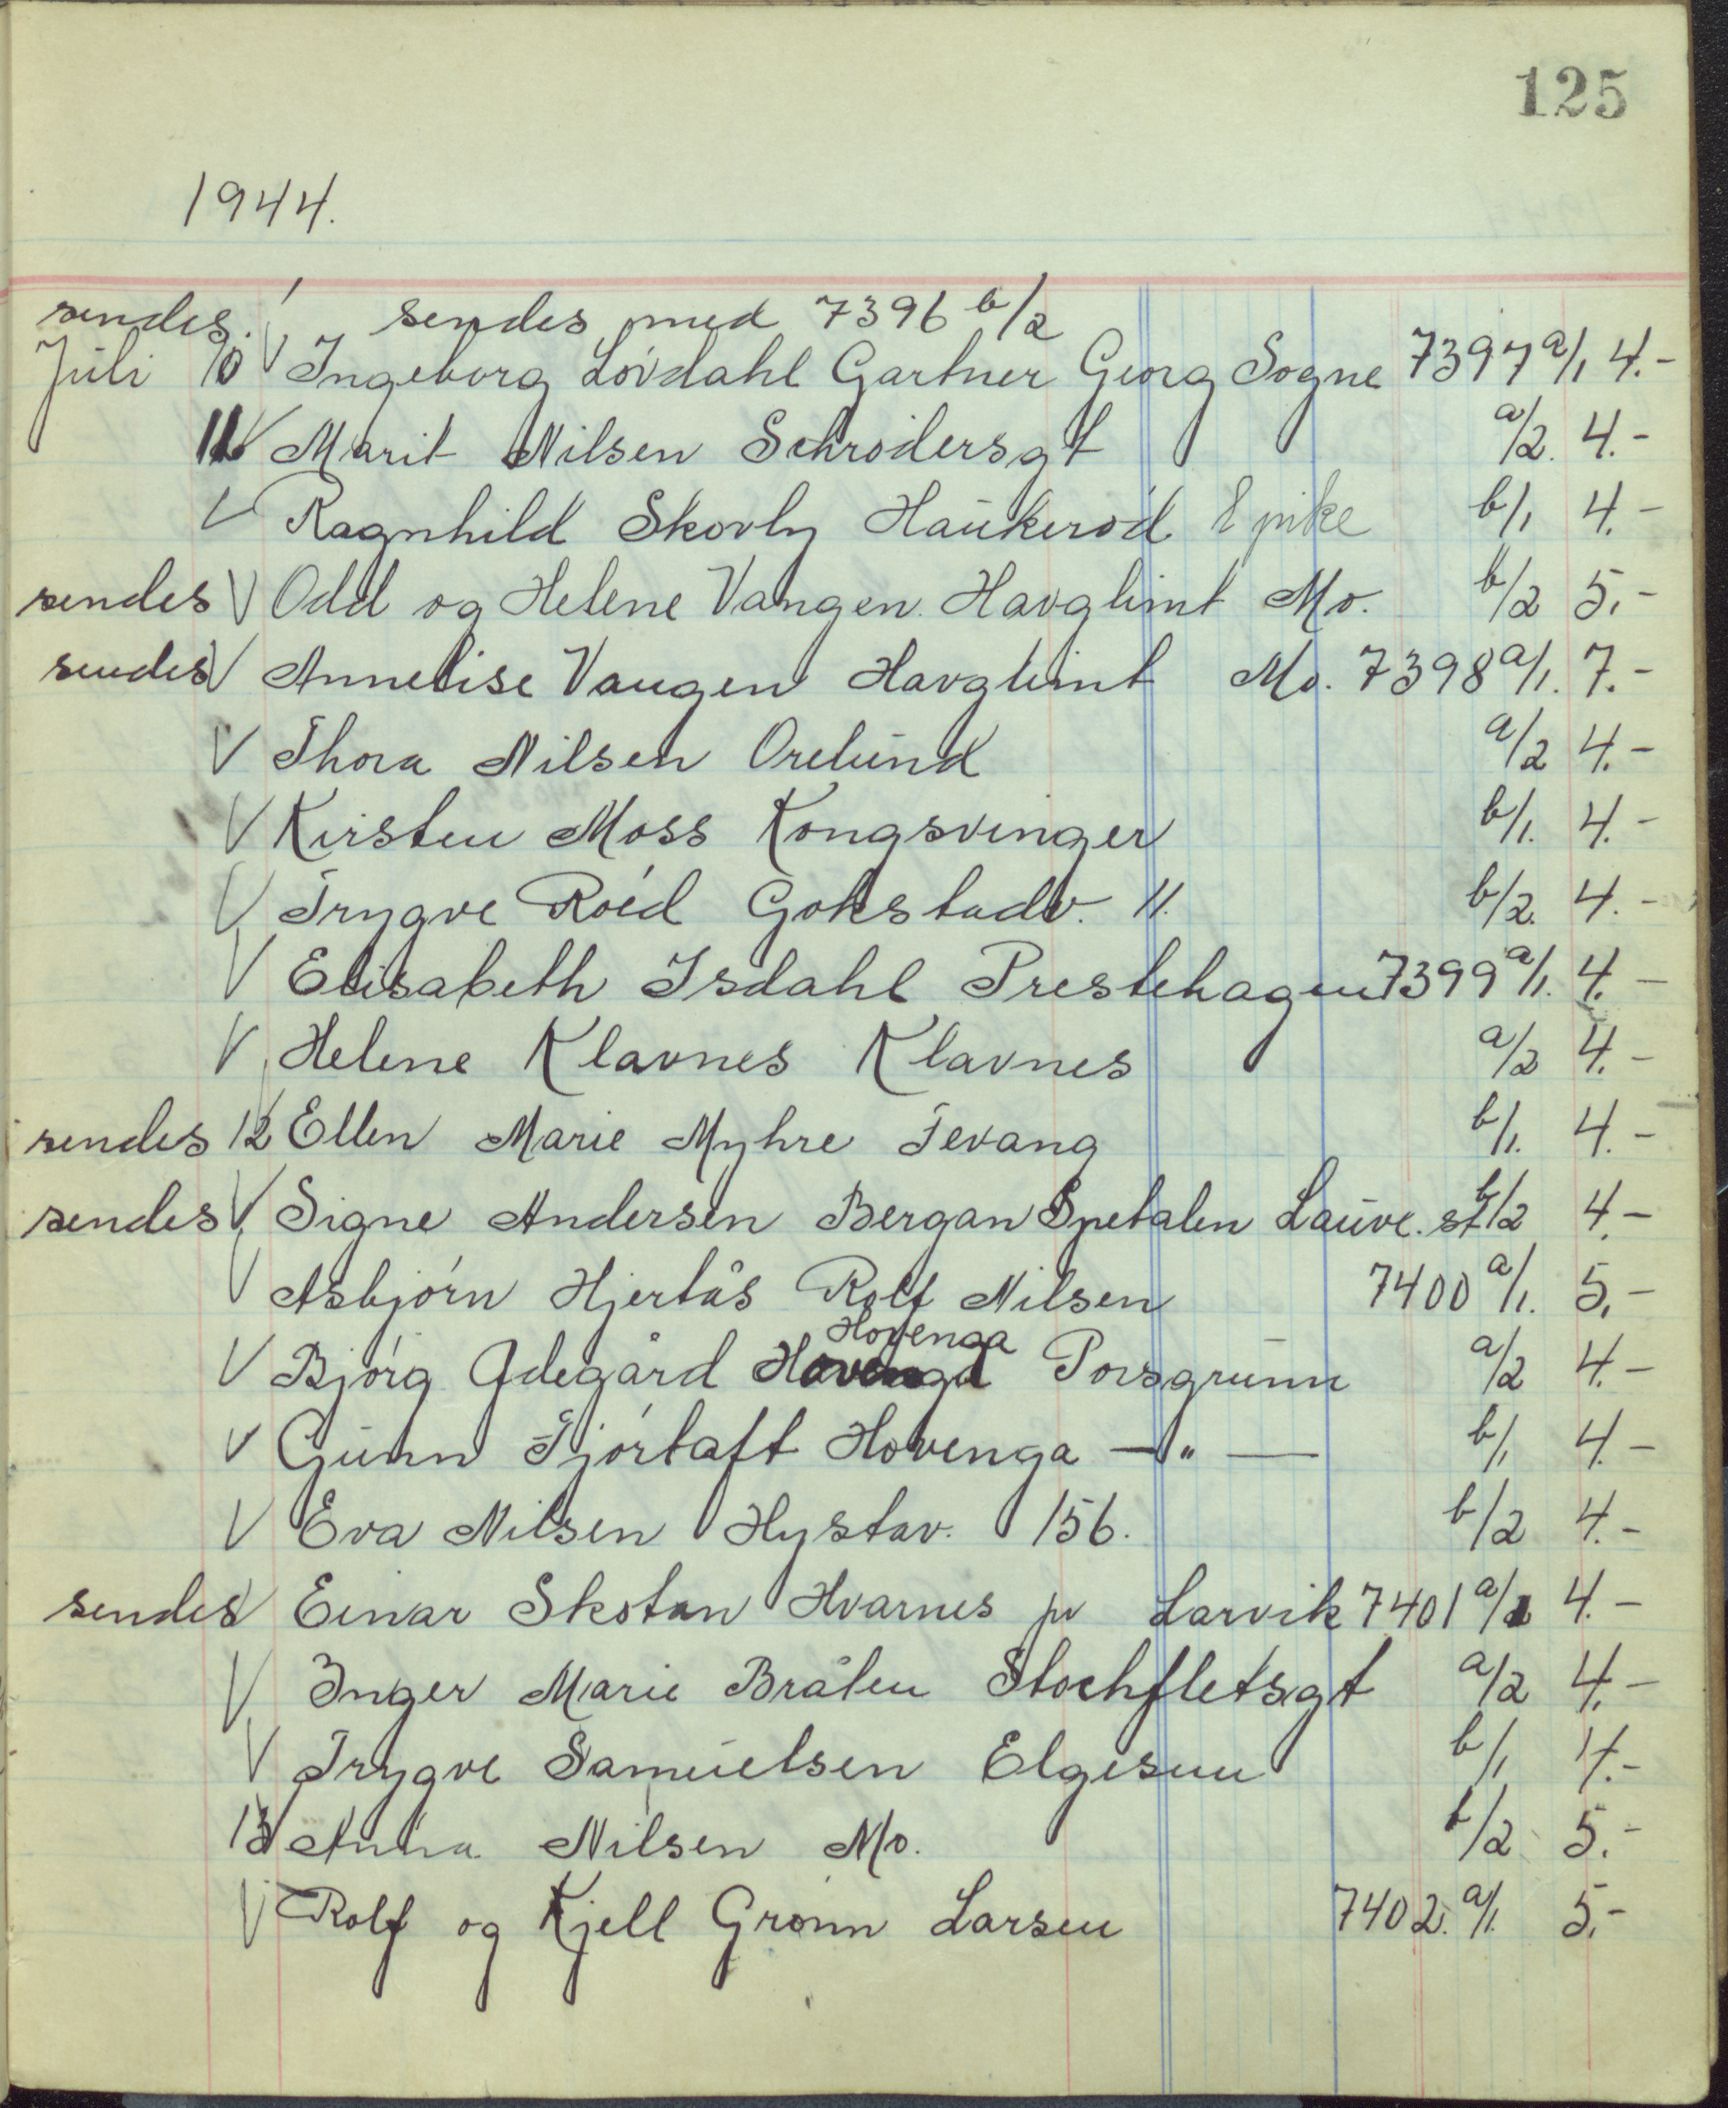 125
1944.
sendes. sendes med 7396 b/2
Juli 10 V Ingeborg Lövdahl Gartner Georg Sogne 7397 a/1 4.-
11 V Marit Nilsen Schrödersgt a/2. 4.-
V Ragnhild Skovly Haukeröd b/1 4.-
sendes V Odd og Helene Vangen Havglimt Mo. b/2 5.-
sendes V Annelise Vangen Havglimt Mo. 7398 a/1. 7.-
V Thora Nilsen Orelund a/2 4.-
V Kirsten Moss Kongsvinger b/1. 4.-
V Trygve Röed Gokstadv. 11. b/2. 4.-
V Elisabeth Isdahl Prestehagen 7399 a/1. 4.-
V Helene Klavnes Klavnes a/2 4.-
sendes 12 Ellen Marie Myhre Tevang b/1. 4.-
sendes V Signe Andersen Bergan Spetalen Lauve. st b/2 4.-
V Asbjörn Hjertås Rolf Nilsen 7400 a/1. 5.-
Hovenga
V Bjórg Ødegård Hovenga Porsgrunn a/2 4.-
V Gunn Fjörtaft Hovenga —"— b/1 4.-
V Eva Nilsen Hystav. 156. b/2 4.-
sendes V Einar Skotan Hvarnes pr Larvik 7401 a/1 4.-
V Inger Marie Bråten Stockfletsgt a/2 4.-
V Trygve Samuelsen Elgesem b/1 4.-
13 Anna Nilsen Mo. b/2 5.-
V Rolf og Kjell Grönn Larsen 7402. a/1. 5.-